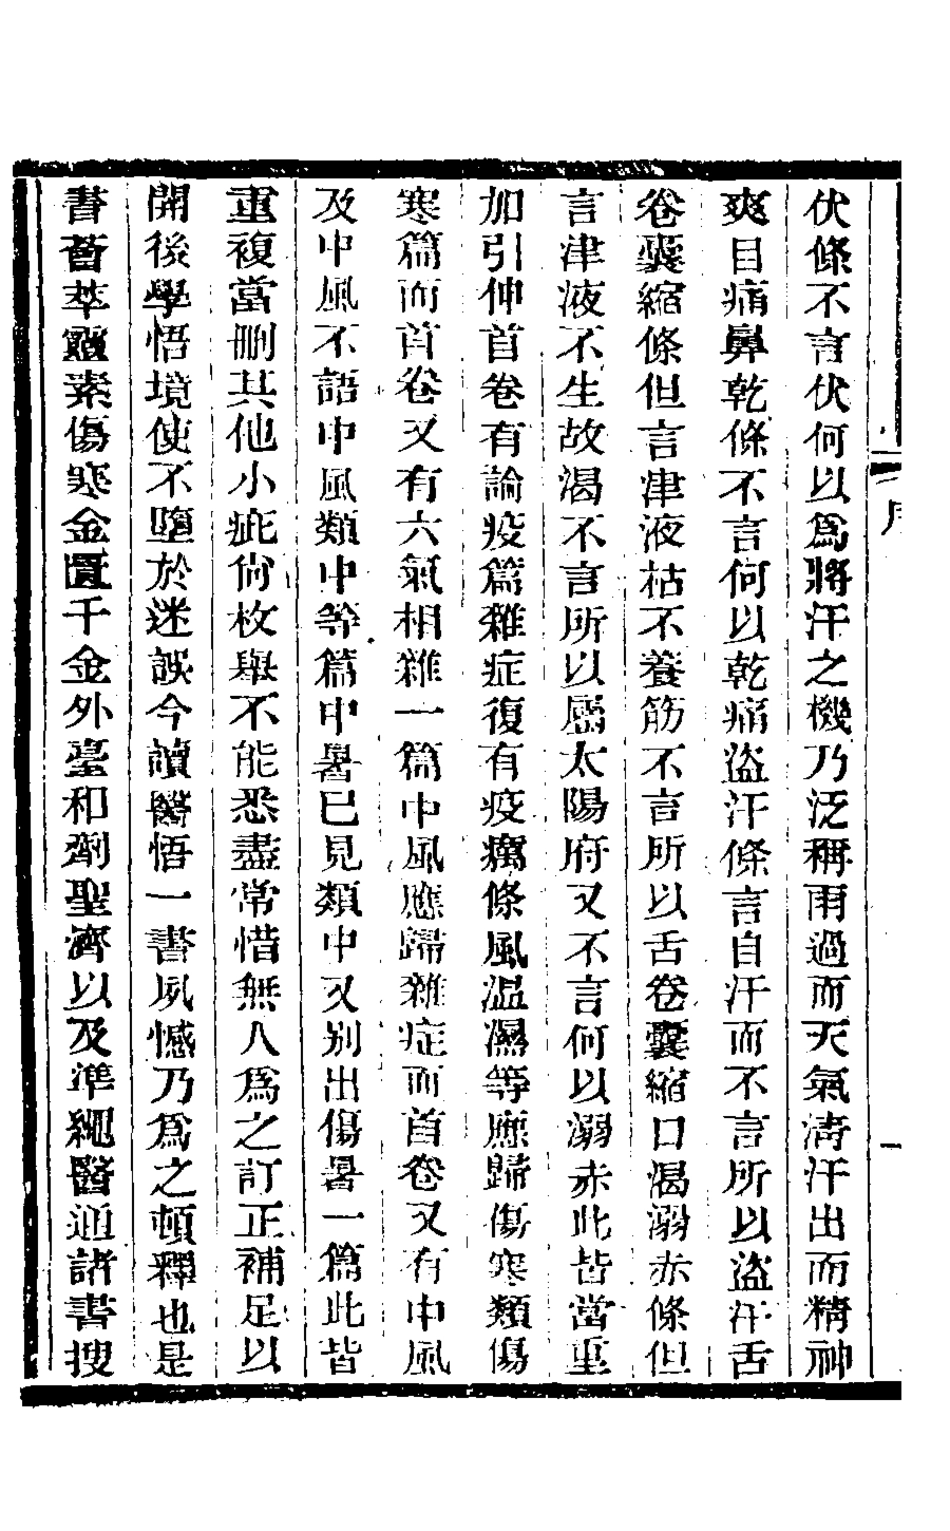 序
一
伏條不言伏何以爲將汗之機乃泛稱雨過而天氣淸汗出而精神
爽目痛鼻乾條不言何以乾痛盜汗條言自汗而不言所以盜汗舌
卷囊縮條但言津液枯不養筋不言所以舌卷囊縮口渴溺赤條但
言津液不生故渴不言所以屬太陽府又不言何以溺赤此皆當重
加引伸首卷有論疫篇雜症復有疫癘條風温濕等應歸傷寒類傷
寒篇而首卷又有六氣相雜一篇中風應歸雜症而首卷又有中風
及中風不語中風類中等篇中暑已見類中又别出傷暑一篇此皆
重複當删其他小疵尙枚舉不能悉盡常惜無人爲之訂正補足以
開後學悟境使不墮於迷誤今讀醫悟一書夙憾乃爲之頓釋也是
書薈萃靈素傷寒金匱千金外臺和劑聖濟以及準繩醫通諸書搜